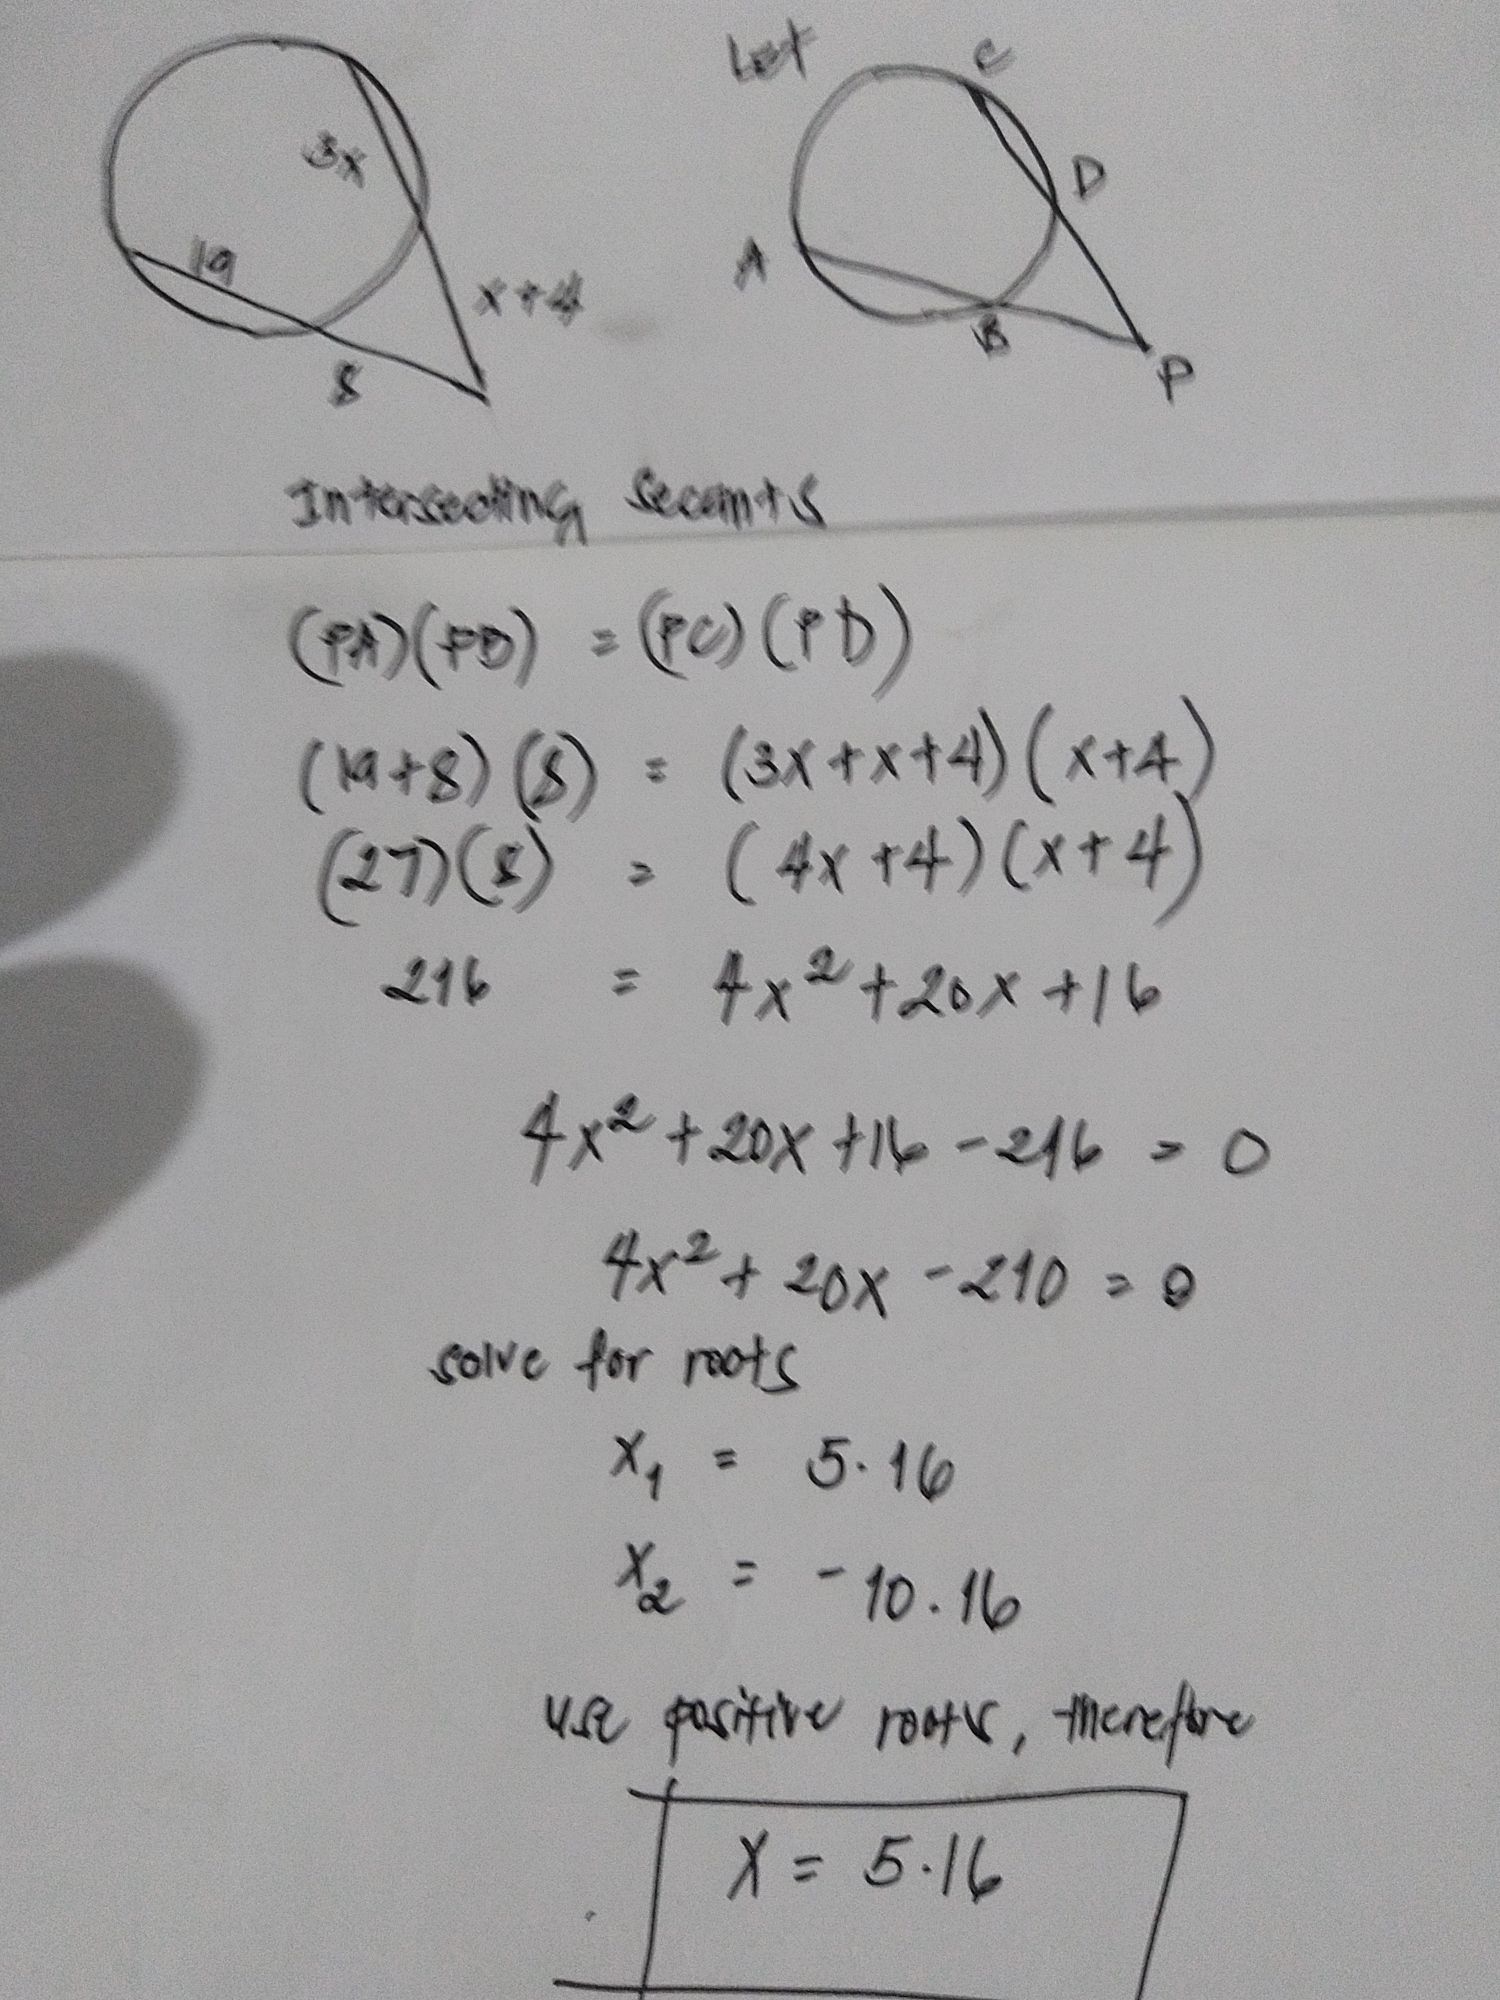 Let
C
3x
D
A
19
x+4
B
8
P
Intersecting secants
(PA)(PB) = (PC)(PD)
(19+8)(8) = (3x+x+4)(x+4)
(27)(8) = (4x+4)(x+4)
216 = 4x²+20x+16
4x²+20x+16-216 = 0
4x²+20x-210 = 0
solve for roots
x₁ = 5.16
x₂ = -10.16
use positive roots, therefore
x = 5.16